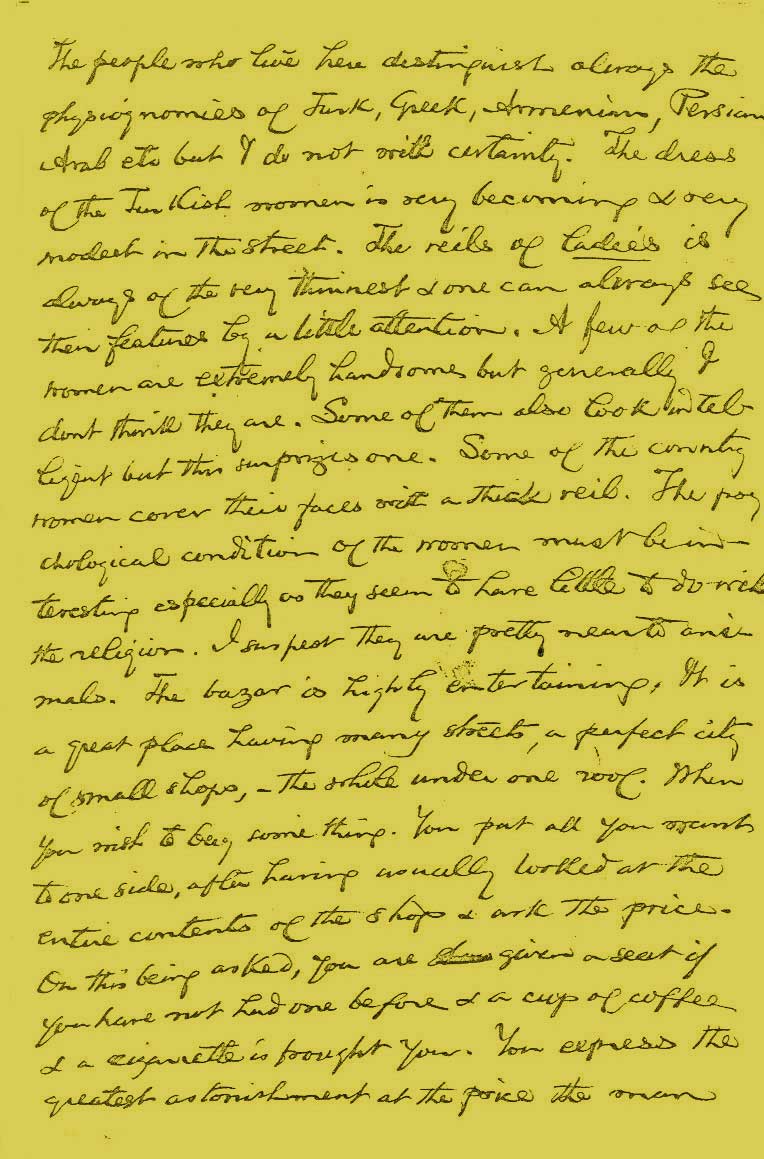 The people who live here distinguish always the
physiognomies of Turk, Greek, Armenian, Persian
Arab etc but I do not with certainty. The dress
of the Turkish women is very becoming & very
modest in the street. The veils of ladies is
always of the very thinnest & one can always see
their features by a little attention. A few of the
women are extremely handsome but generally I
dont think they are. Some of them also look intel-
ligent but this surprizes one. Some of the country
women cover their faces with a thick veil. The psy
chological condition of the women must be in-
teresting especially as they seem to have little to do with
the religion. I suspect they are pretty near to ani-
mals. The bazar is highly entertaining. It is
a great place having many streets, a perfect city
of small shops, – the whole under one roof. When
you wish to buy some thing. You put all you want
to one side, after having usually looked at the
entire contents of the shop & ask the price.
On this being asked, you are given a seat if
you have not had one before & a cup of coffee
& a cigarette is brought you. You express the
greatest astonishment at the price the man